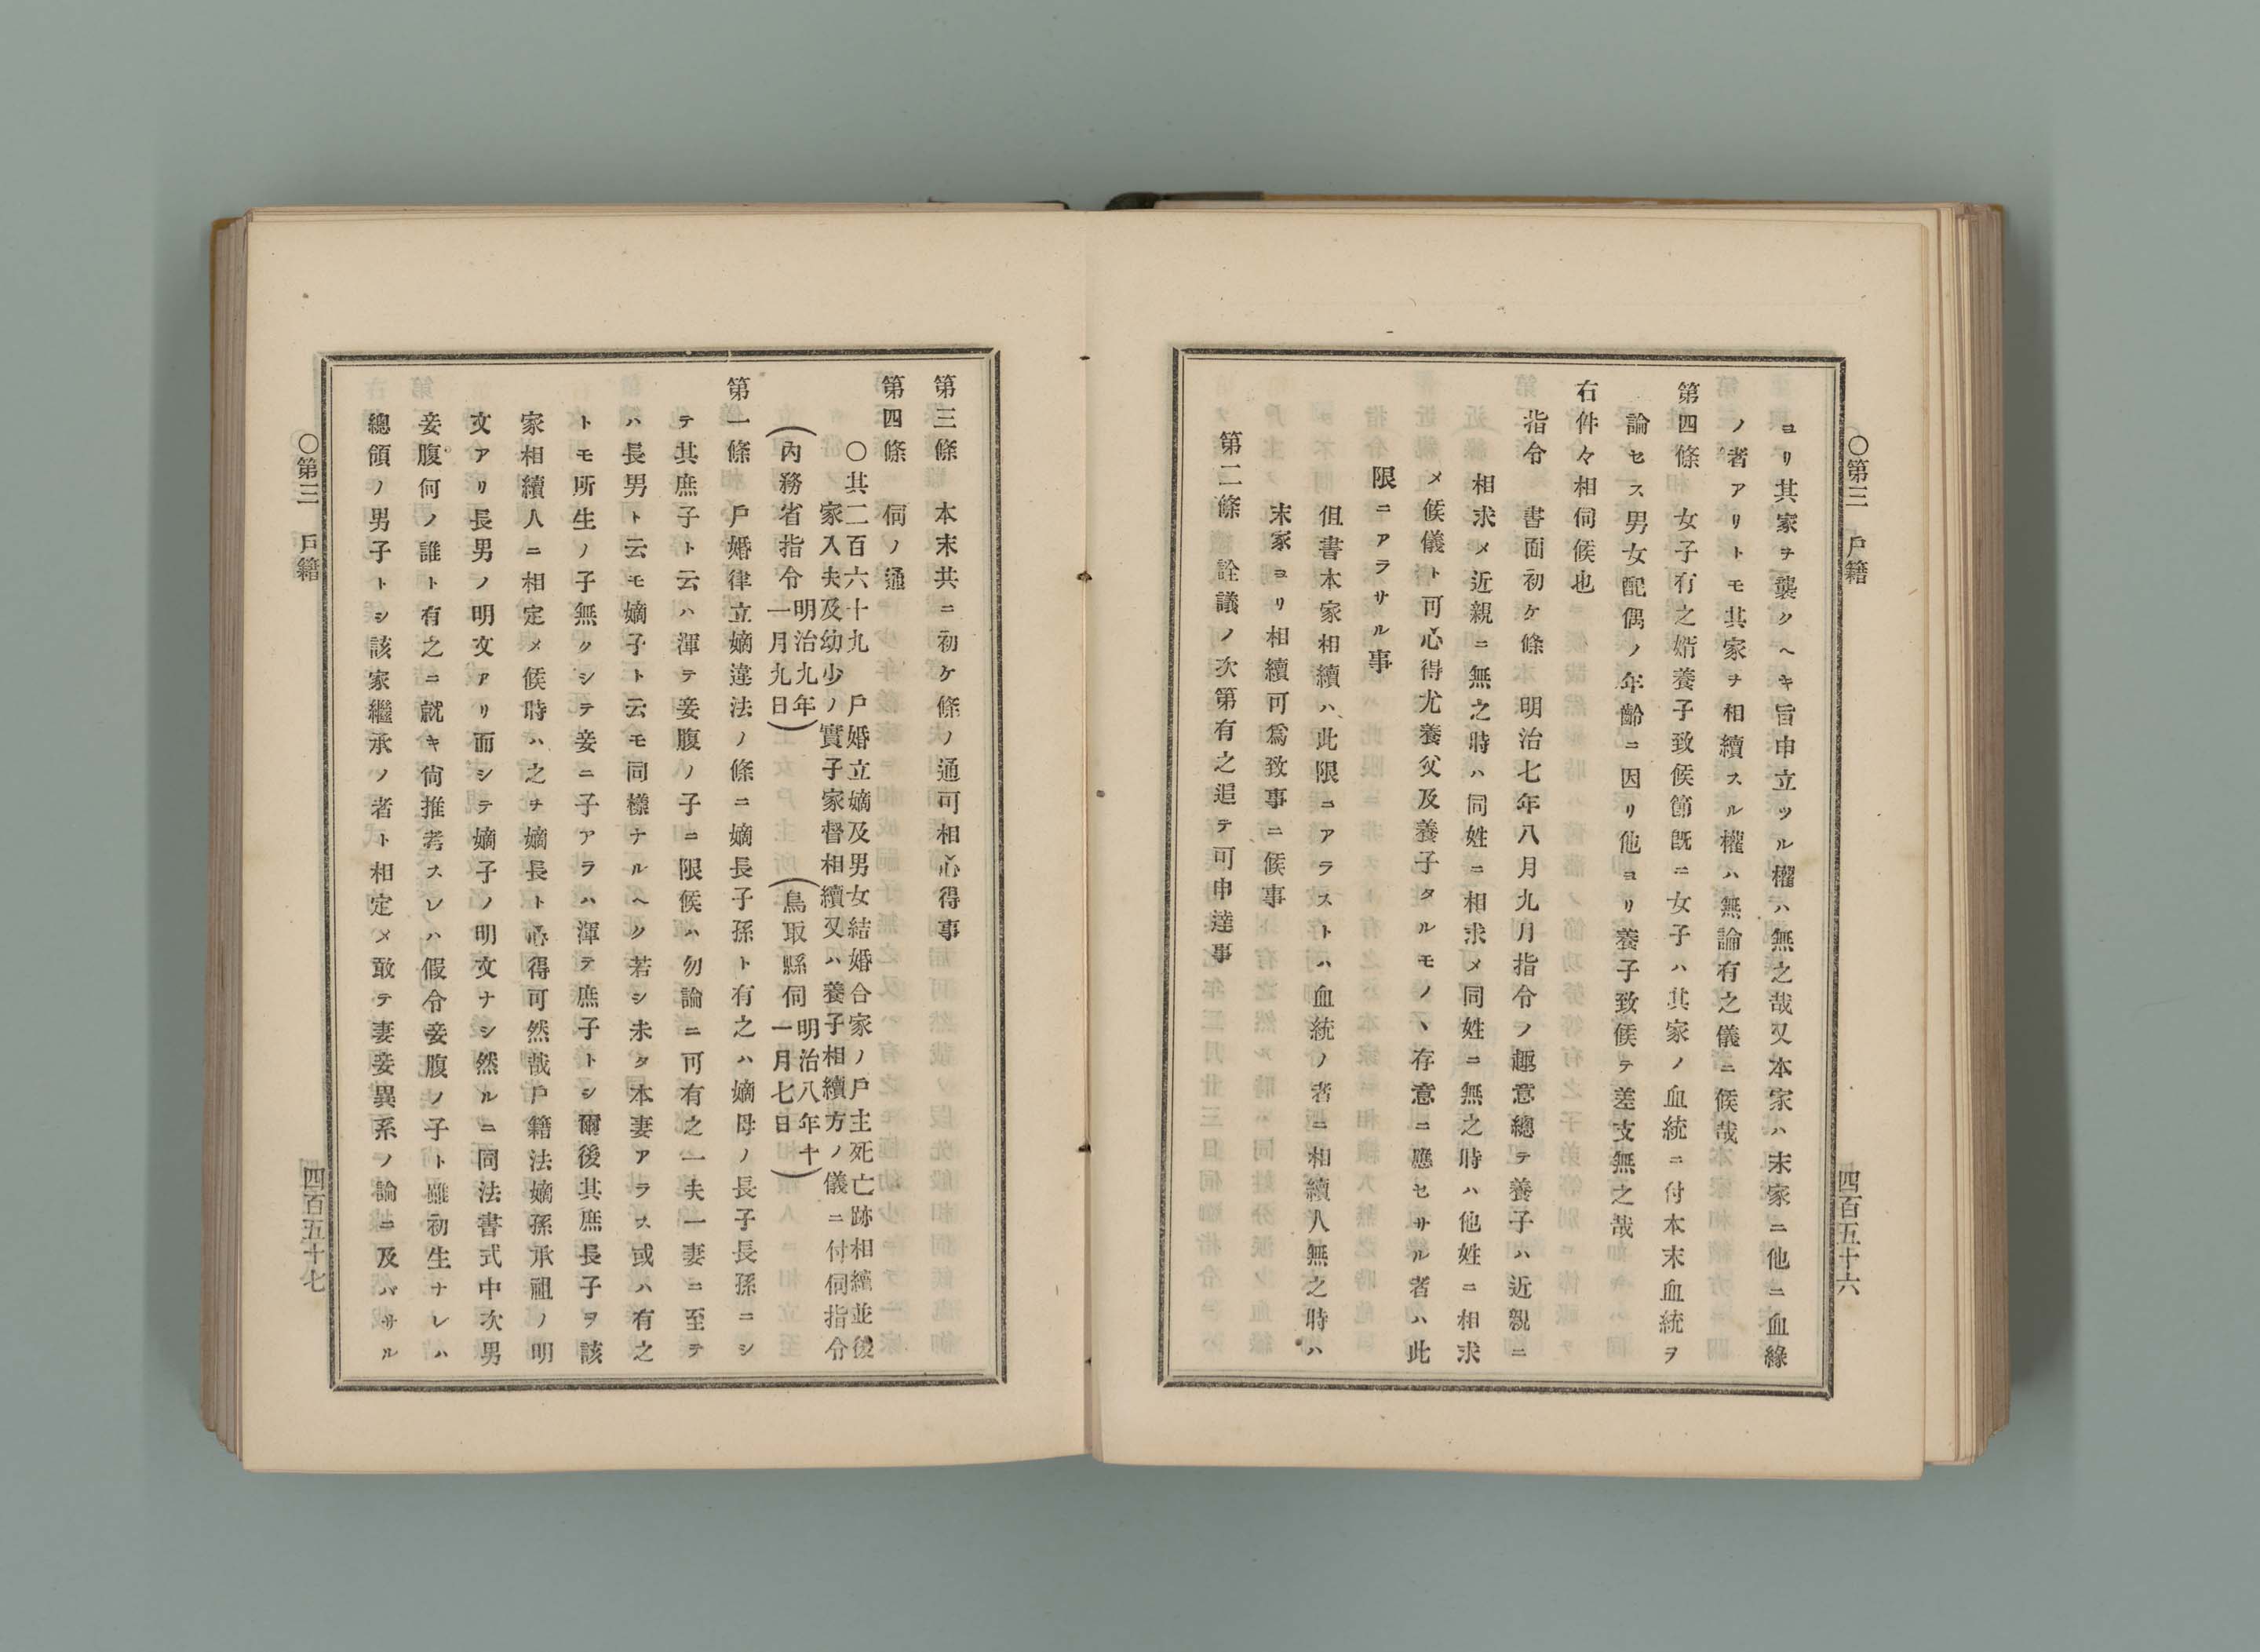 〇第三 戸籍
四百五十六
ヨリ其家ヲ襲クヘキ旨申立ツル權ハ無之哉又本家ハ末家ニ他ニ血緣
ノ者アリトモ其家ヲ相續スル權ハ無論有之儀ニ候哉
第四條 女子有之婿養子致候節既ニ女子ハ其家ノ血統ニ付本末血統ヲ
論セス男女配偶ノ年齡ニ因リ他ヨリ養子致候テ差支無之哉
右件々相伺候也
指令 書面初ケ條 明治七年八月九月指令ノ趣意總テ養子ハ近親ニ
相求メ近親ニ無之時ハ同姓ニ相求メ同姓ニ無之時ハ他姓ニ相求
メ候儀ト可心得尤養父及養子タルモノヽ存意ニ應セサル者ハ此
限ニアラサル事
但書本家相續ハ此限ニアラストハ血統ノ者ニ相續人無之時ハ
末家ヨリ相續可爲致事ニ候事
第二條 詮議ノ次第有之追テ可申達事
第三條 本末共ニ初ケ條ノ通可相心得事
第四條 伺ノ通
〇其二百六十九 戸婚立嫡及男女結婚合家ノ戸主死亡跡相續並後
家入夫及幼少ノ實子家督相續又ハ養子相續方ノ儀ニ付伺指令
(內務省指令明治九年一月九日) (鳥取縣伺明治八年十一月七日)
第一條 戸婚律立嫡違法ノ條ニ嫡長子孫ト有之ハ嫡母ノ長子長孫ニシ
テ其庶子ト云ハ渾テ妾腹ノ子ニ限候ハ勿論ニ可有之一夫一妻ニ至テ
ハ長男ト云モ嫡子ト云モ同樣ナルヘク若シ未タ本妻アラス或ハ有之
トモ所生ノ子無クシテ妾ニ子アラハ渾テ庶子トシ爾後其庶長子ヲ該
家相續人ニ相定メ候時ハ之ヲ嫡長ト心得可然哉戸籍法嫡孫承祖ノ明
文アリ長男ノ明文アリ而シテ嫡子ノ明文ナシ然ルニ同法書式中次男
妾腹何ノ誰ト有之ニ就キ尙推考スレハ假令妾腹ノ子ト雖初生ナレハ
總領ノ男子トシ該家繼承ノ者ト相定メ敢テ妻妾異系ノ論ニ及ハサル
〇第三 戸籍
四百五十七